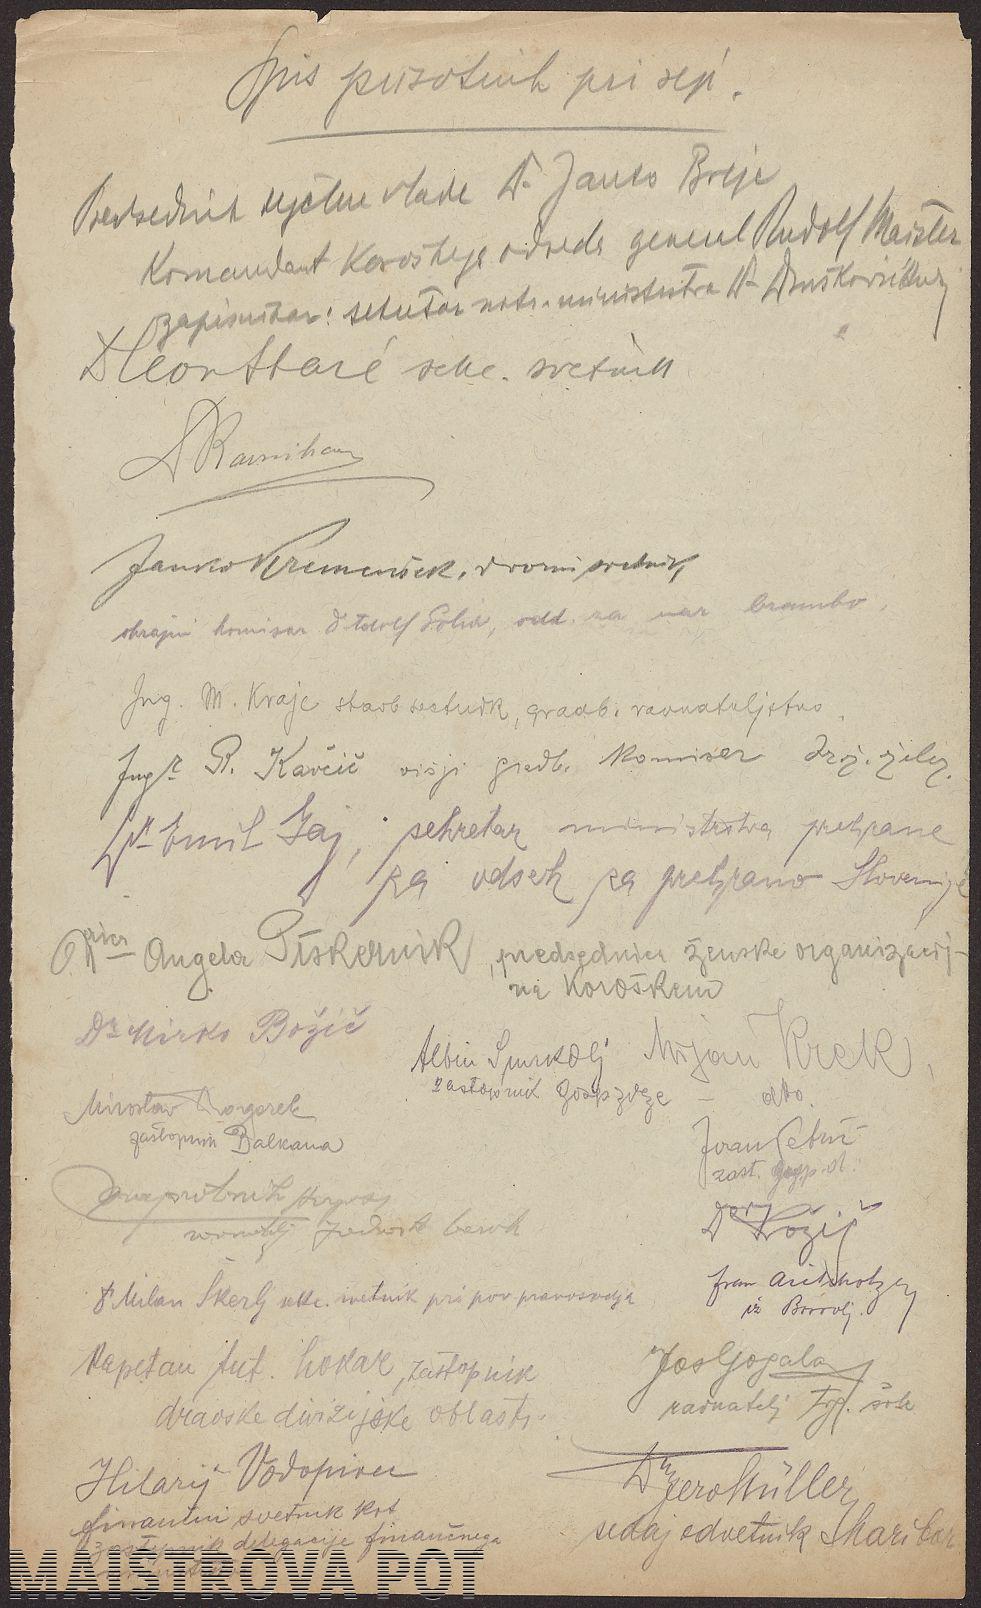 Spis prisotnih pri seji.
Predsednik dež. vlade Dr. Janko Brejc
Komandant Koroškega odreda general Rudolf Maister
zapisnikar: sekretar notr. ministrstva Dr.
Dr Leon Stare sekc. svetnik
Dr Ravnihar
Janko Kremenšek, dvorni svetnik,
okrajni komisar Dr. Adolf Golia, odd. za nar brambo.
Ing. M. Kraje stavb svetnik, gradb. ravnateljstvo.
Ing. R. Kavčič višji gradb. Komisar drž. želez.
Dr Emil sekretar ministrstva prehrane
za odsek za prehrano Slovenije
Angela Piskernik, predsednica ženske organizacije
na Koroškem
Dr Mirko Božič
Albin Mirjam Krek,
zastopnik Gosp. zveze — dto.
Miroslav
zastopnik Balkana
Ivan
zast. Gosp. d.
Dr
ravnatelj Jadransk. bank
Dr Milan Škerlj sekc. svetnik pri pov. pravosodja
Fran
iz Borovlj.
Kapetan Lokar, zastopnik
dravske divizijske oblasti.
Jos Gogala
ravnatelj trg. šole
Hilarij Vodopivec
finančni svetnik kot
zastopnik delegacije finančnega
Dr Fero Müller,
sedaj odvetnik Maribor
MAISTROVA POT